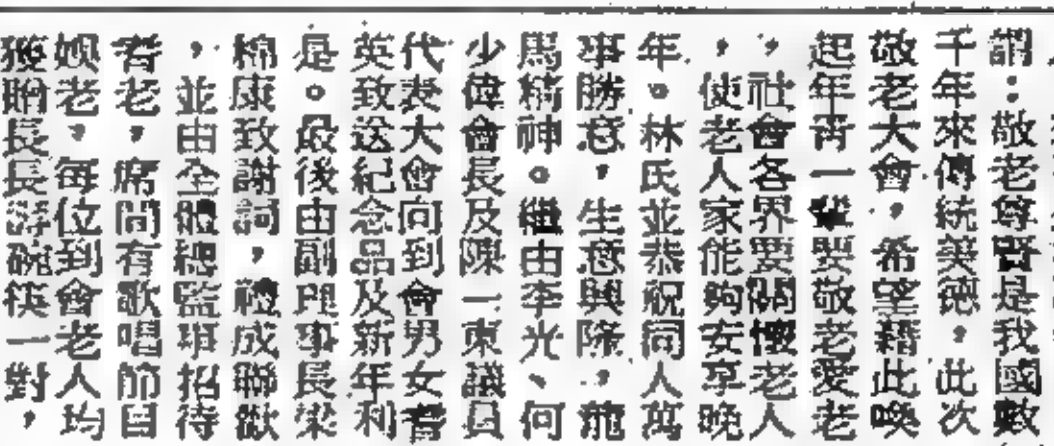 謂：敬老尊賢是我國數
千年來傳統美德，此次
敬老大會，希望藉此喚
起年青一輩要敬老愛老
，社會各界要關懷老人
，使老人家能夠安享晚
年。林氏並恭祝同人萬
事勝意，生意興隆，龍
馬精神。繼由李光、何
少偉會長及陳一東議員
代表大會向到會男女耆
英致送紀念品及新年利
是。最後由副理事長梁
棉康致謝詞，禮成聯歡
，並由全體總監班招待
耆老，席間有歌唱節目
娛老，每位到會老人均
獲贈長長壽碗筷一對，